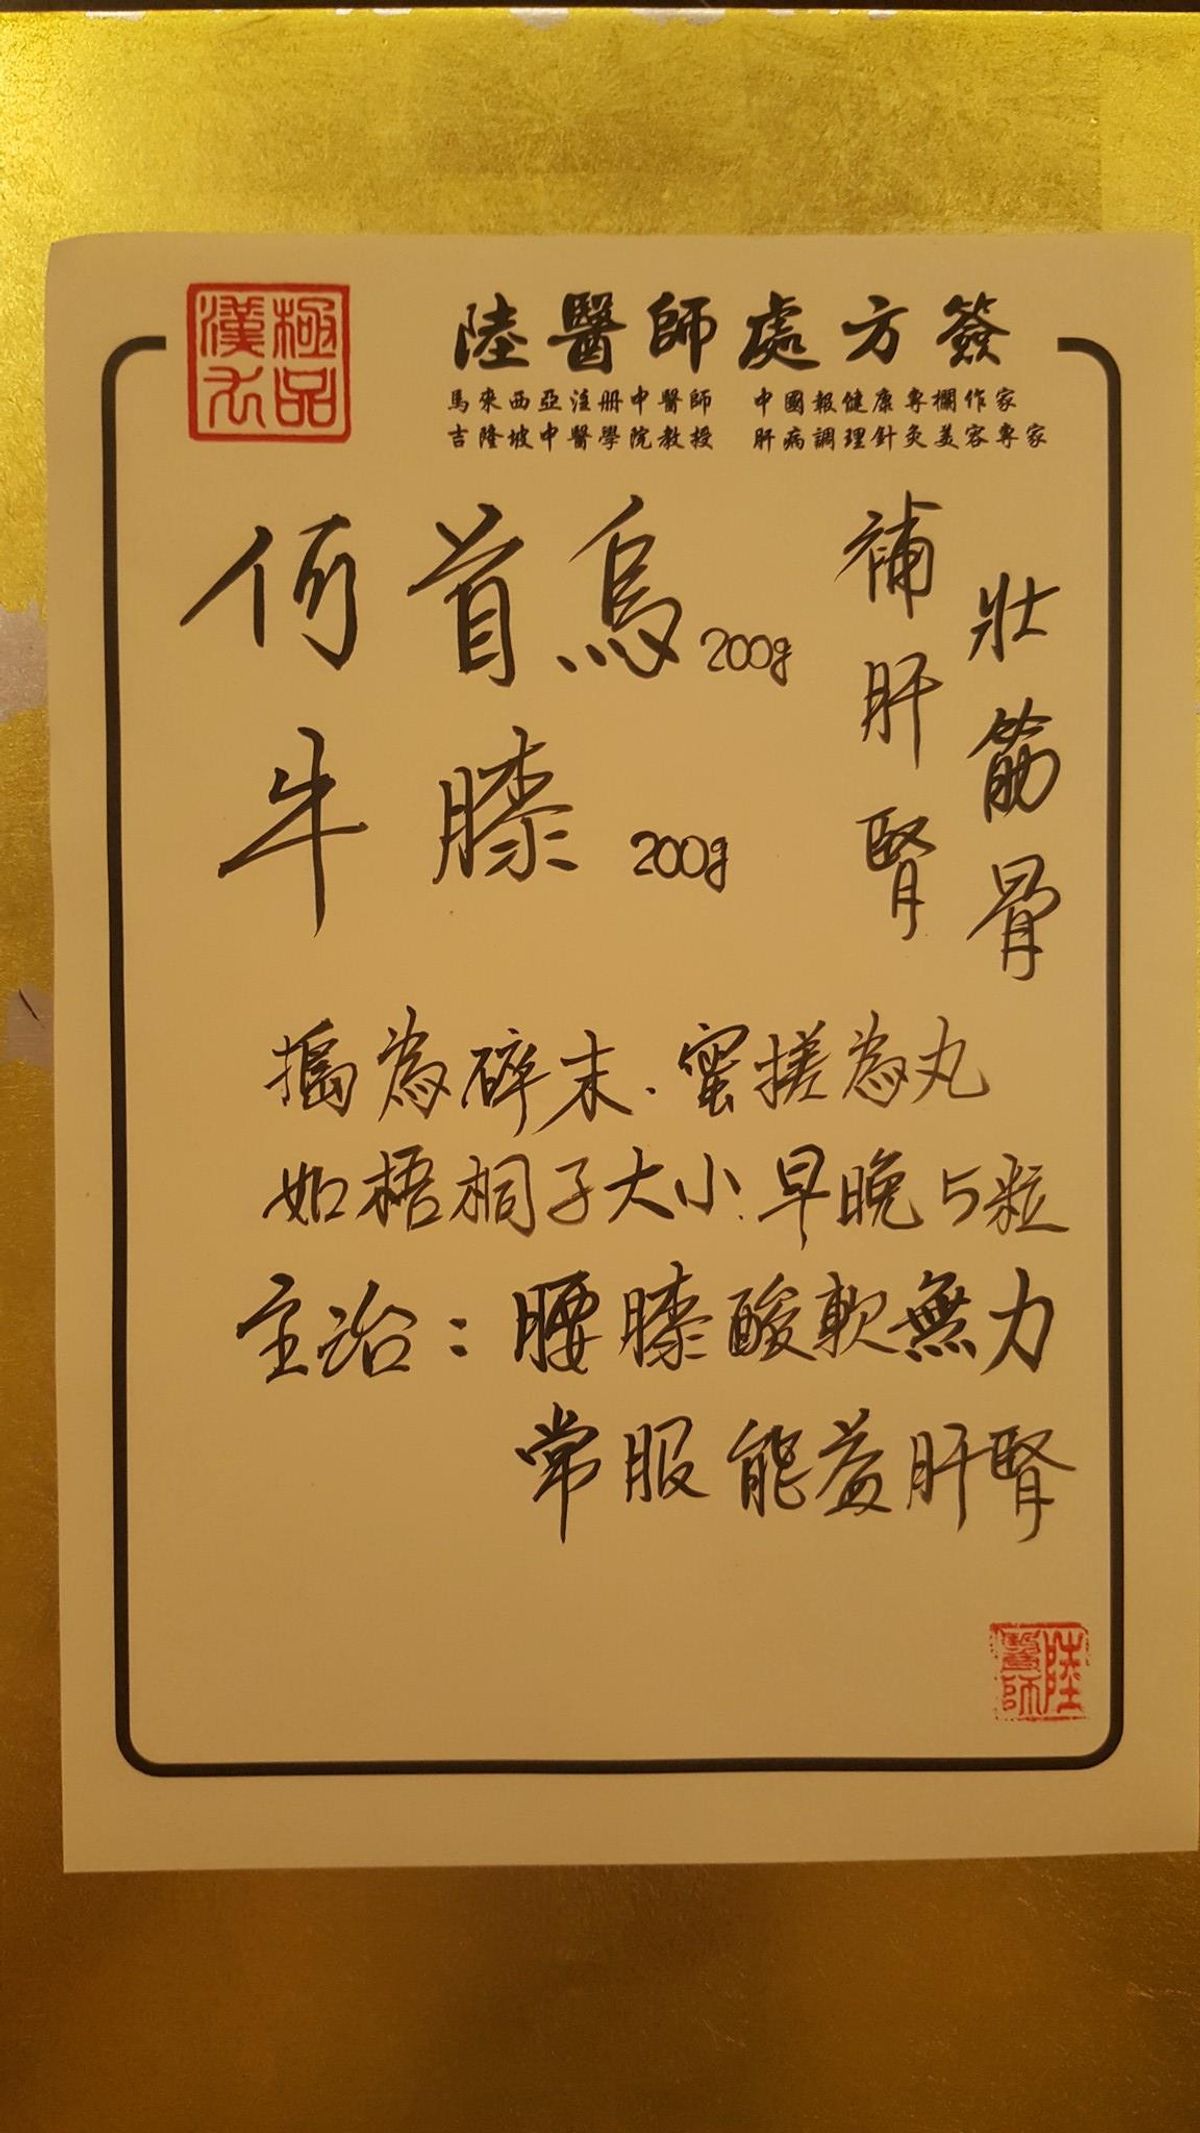 極品
漢方
陸醫師處方簽
馬來西亞註册中醫師 中國報健康專欄作家
吉隆坡中醫學院教授 肝病調理針灸美容專家
何首烏 200g
牛膝 200g
補肝腎
壯筋骨
搗為碎末、蜜搓為丸
如梧桐子大小、早晚5粒
主治：腰膝酸軟無力
常服能益肝腎
陸醫師